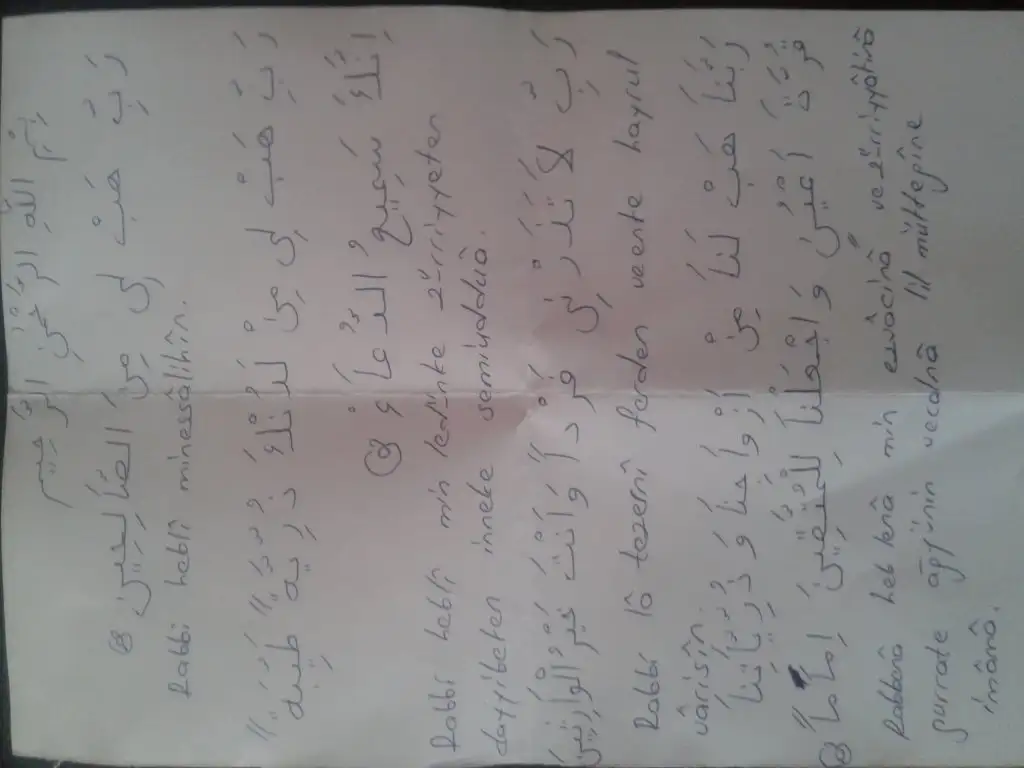 بِسْمِ اللّٰهِ الرَّحْمٰنِ الرَّحِيمِ
رَبِّ هَبْ لِى مِنَ الصَّالِحِينَ
Rabbi heblî minessâlihîn.
رَبِّ هَبْ لِى مِنْ لَدُنْكَ ذُرِّيَّةً طَيِّبَةً
إِنَّكَ سَمِيعُ الدُّعَاءِ
Rabbi heblî min ledünke zürriyyeten
dayyibeten inneke semîuddüâ.
رَبِّ لَا تَذَرْنِى فَرْدًا وَأَنْتَ خَيْرُ الْوَارِثِينَ
Rabbi lâ tezernî ferden veente hayrul
vârisîn.
رَبَّنَا هَبْ لَنَا مِنْ أَزْوَاجِنَا وَذُرِّيَّاتِنَا
قُرَّةَ أَعْيُنٍ وَاجْعَلْنَا لِلْمُتَّقِينَ إِمَامًا
Rabbenâ heb lenâ min ezvâcinâ vezürriyyâtinâ
gurrate âyünin vecalnâ lil müttegîne
imâmâ.